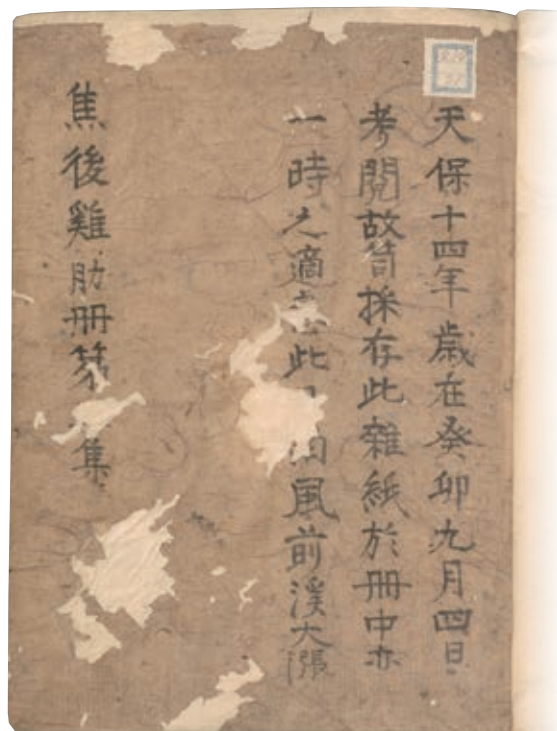 天保十四年歳在癸卯九月四日
考閲故笥採存此雜紙於冊中亦
一時之適 此 風前溪大漲
焦後雞肋冊 集